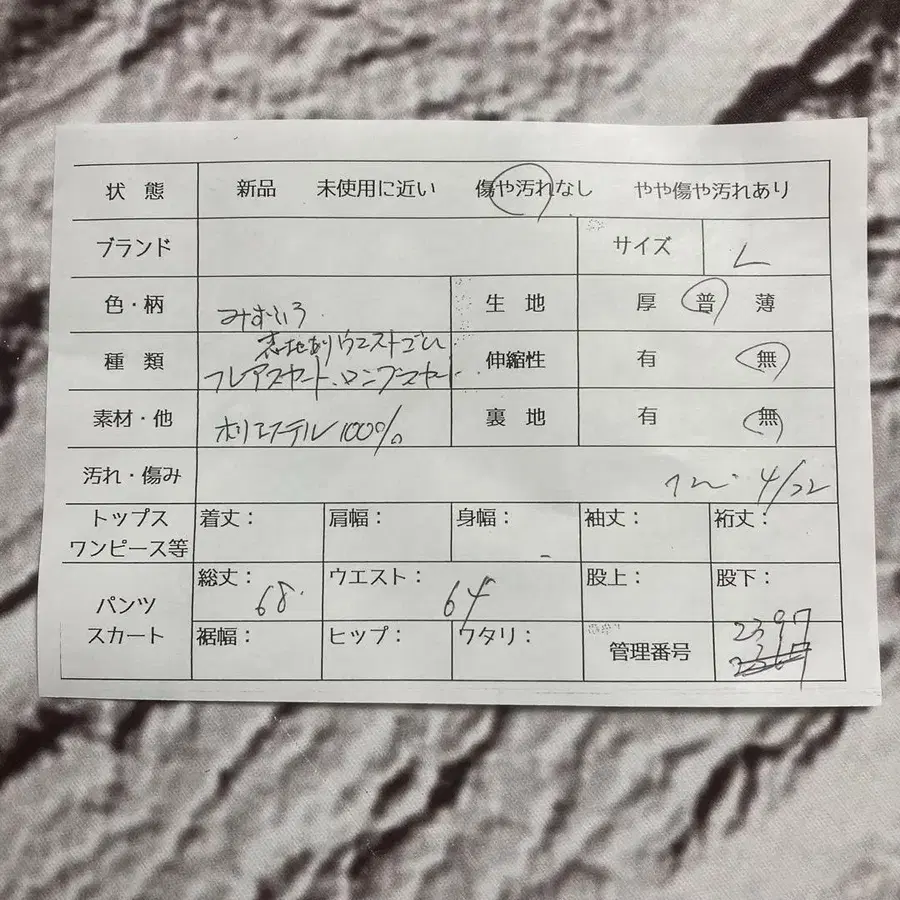 状態 新品 未使用に近い 傷や汚れなし やや傷や汚れあり
ブランド サイズ L
色・柄 みずいろ 生地 厚 普 薄
種類 ウエストゴム 伸縮性 有 無
フレアスカート、ロングスカート
素材・他 ポリエステル100% 裏地 有 無
汚れ・傷み 4/22
トップス ワンピース等 着丈： 肩幅： 身幅： 袖丈： 裄丈：
パンツ スカート 総丈： 68 ウエスト： 64 股上： 股下：
裾幅： ヒップ： ワタリ： 管理番号 2397